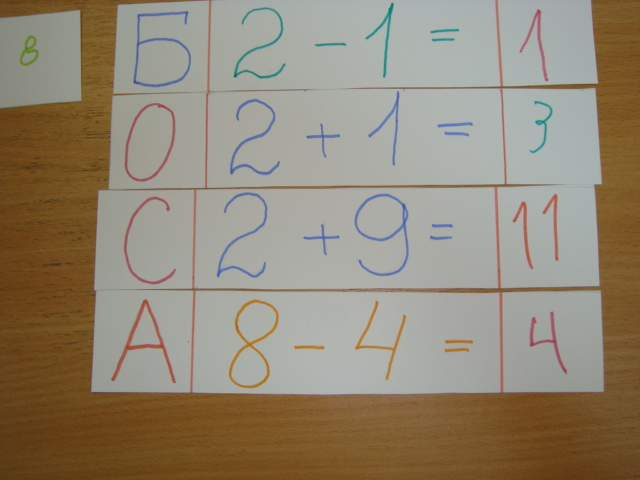 8
Б 2 - 1 = 1
О 2 + 1 = 3
С 2 + 9 = 11
А 8 - 4 = 4